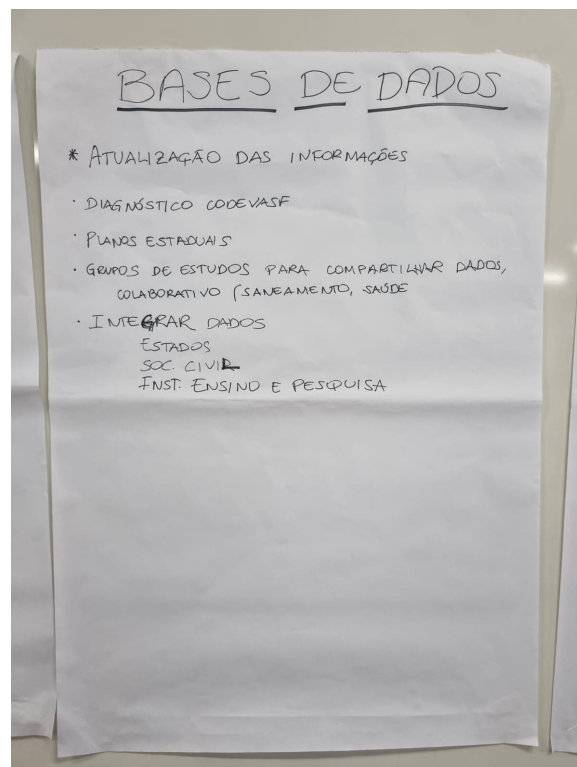 BASES DE DADOS
* ATUALIZAÇÃO DAS INFORMAÇÕES
· DIAGNÓSTICO CODEVASF
· PLANOS ESTADUAIS
· GRUPOS DE ESTUDOS PARA COMPARTILHAR DADOS,
COLABORATIVO (SANEAMENTO, SAÚDE
· INTEGRAR DADOS
ESTADOS
SOC. CIVIL
INST. ENSINO E PESQUISA